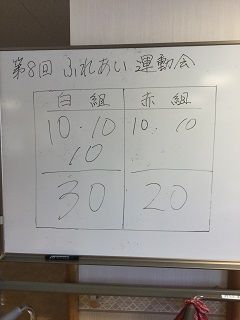 第8回 ふれあい 運動会
白組 赤組
10・10 10・10
10
30 20